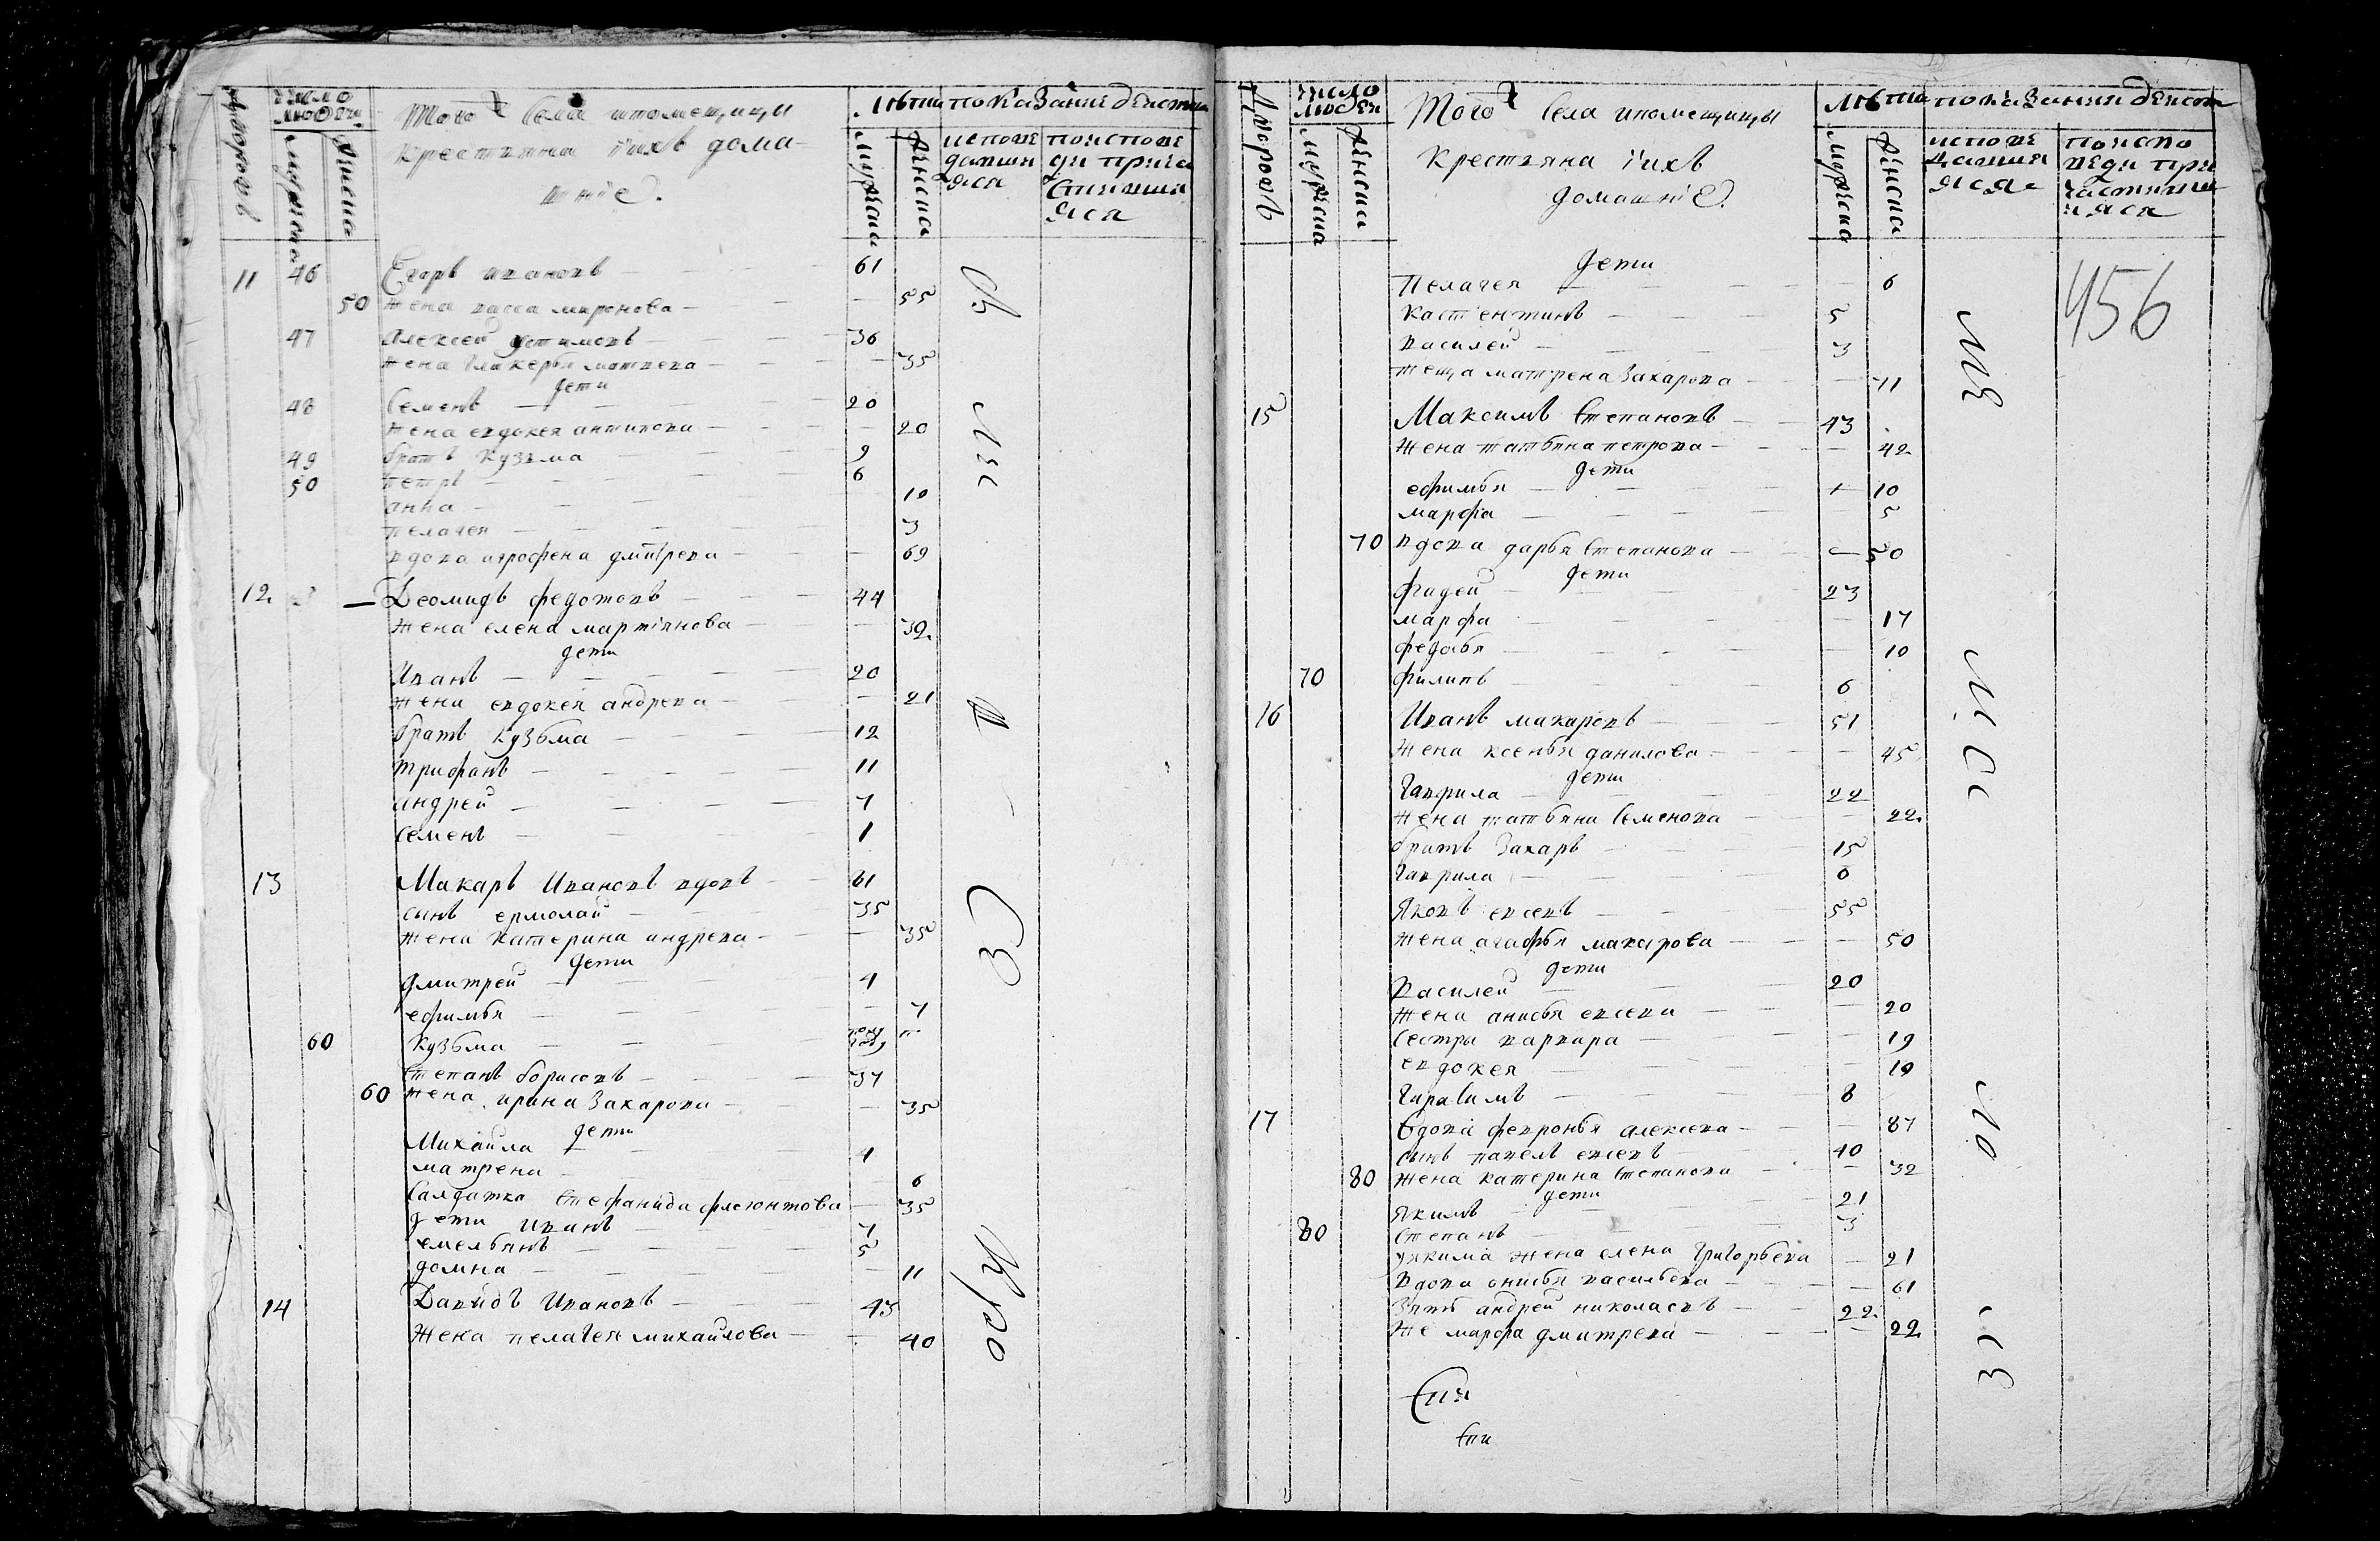 дворовъ
число людей
мужеска
женска
Того ж села и помещицы
крестьяна и ихъ дома-
шние.
лѣта
мужеска
женска
показание действа
исповедавшияся
по исповеди причастившияся
11 46 Егоръ ивановъ 61
50 жена васса миронова 55
47 алексей устимовъ 36
жена гликерья матвева 35
дети
48 Семенъ 20
жена евдокея антипова 20
49 братъ кузьма 9
50 петръ 6
анна 10
пелагея 3
вдова агрофена дмитрева 69
12 Деомидъ федотовъ 44
жена елена мартiянова 39
дети
Иванъ 20
жена евдокея андрева 21
братъ кузьма 12
трифанъ 11
андрей 7
Семенъ 1
13 Макаръ Ивановъ вдовъ 61
сынъ ермолай 35
жена катерина андрева 35
дети
дмитрей 4
ефимья 7
60 Кузьма
Степанъ борисовъ 37
60 жена ирина Захарова 35
дети
Михайла 4
матрена 6
Салдатка Стефанида флеонтова 35
дети иванъ 7
емельянъ 5
домна 11
14 Давидъ Ивановъ 43
жена пелагея михайлова 40
дворовъ
число людей
мужеска
женска
Того ж села и помещицы
крестьяна и ихъ
домашние.
лѣта
мужеска
женска
показания действа
исповедавшияся
по исповеди причастившияся
456
дети
Пелагея 6
кастентинъ 5
василей 3
теща матрена Захарова 71
15 Максимъ Степановъ 43
жена татьяна петрова 42
дети
ефимья 10
марфа 5
70 вдова дарья Степанова 50
дети
фадей 23
марфа 17
федосья 10
70 филипъ 6
16 Иванъ макаровъ 51
жена ксенья данилова 45
дети
Гаврила 22
жена татьяна Семенова 22
братъ Захаръ 15
Гаврила 6
Яковъ евсевъ 55
жена агафья макарова 50
дети
Василей 20
жена анисья евсева 20
Сестры варвара 19
евдокея 10
Гарасимъ 8
17 Вдова февронья алексева 87
сынъ павелъ евсевъ 40
80 жена катерина Степанова 32
дети
Якимъ 21
80 Степанъ 3
у якима жена елена Григорьева 21
Вдова онисья васильева 61
Зять андрей николаевъ 22
же марфа дмитрева 22